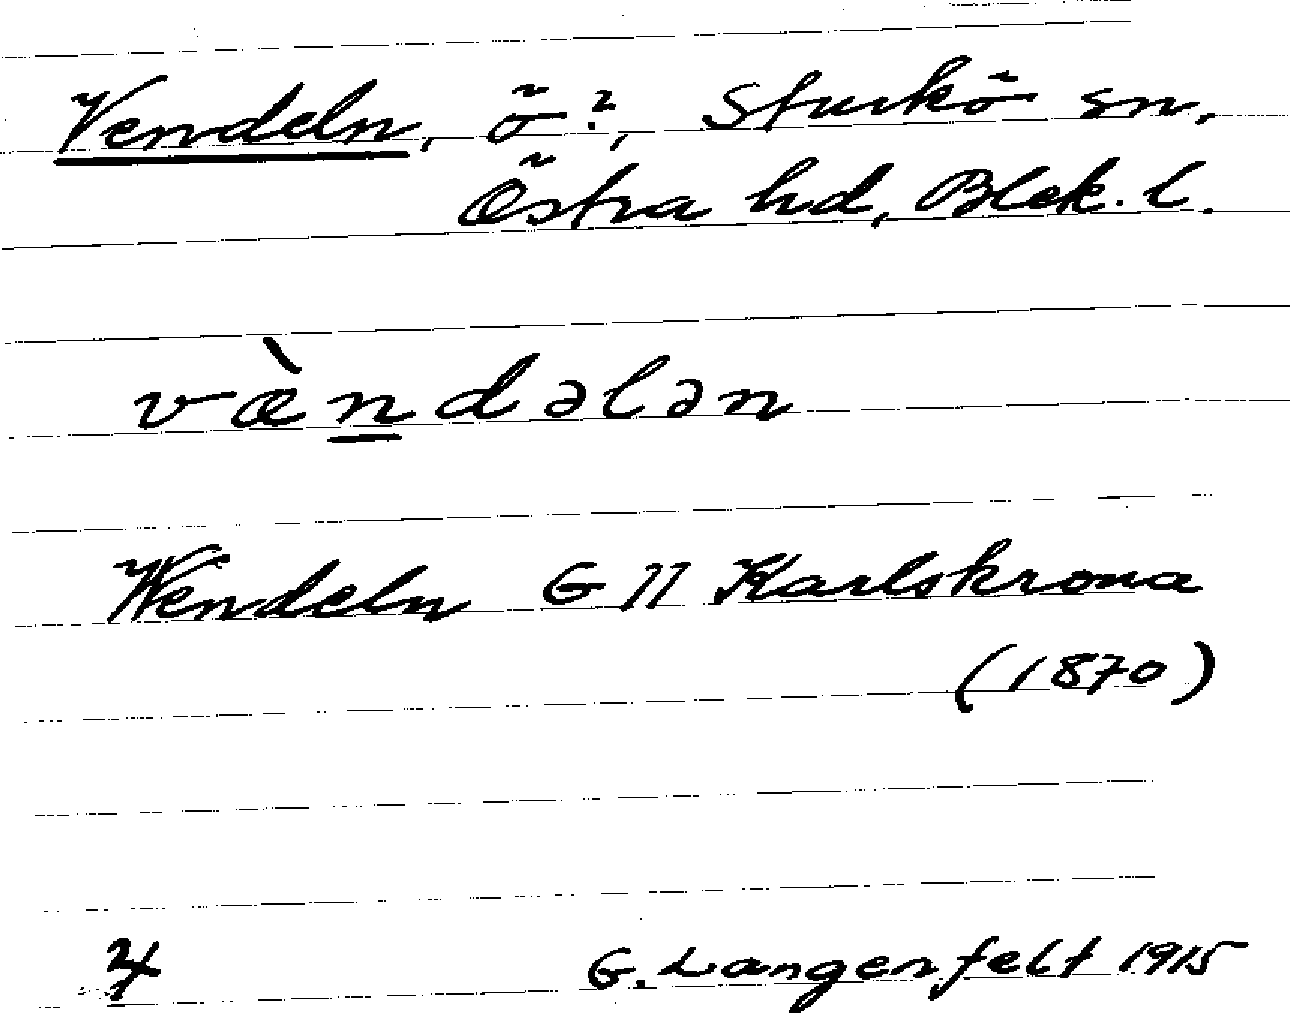 Vendeln, ö?, Sturkö sn,
Östra hd, Blek. l.
væ̀ndələn
Wendeln G 11 Karlskrona
(1870)
G. Langenfelt 1915